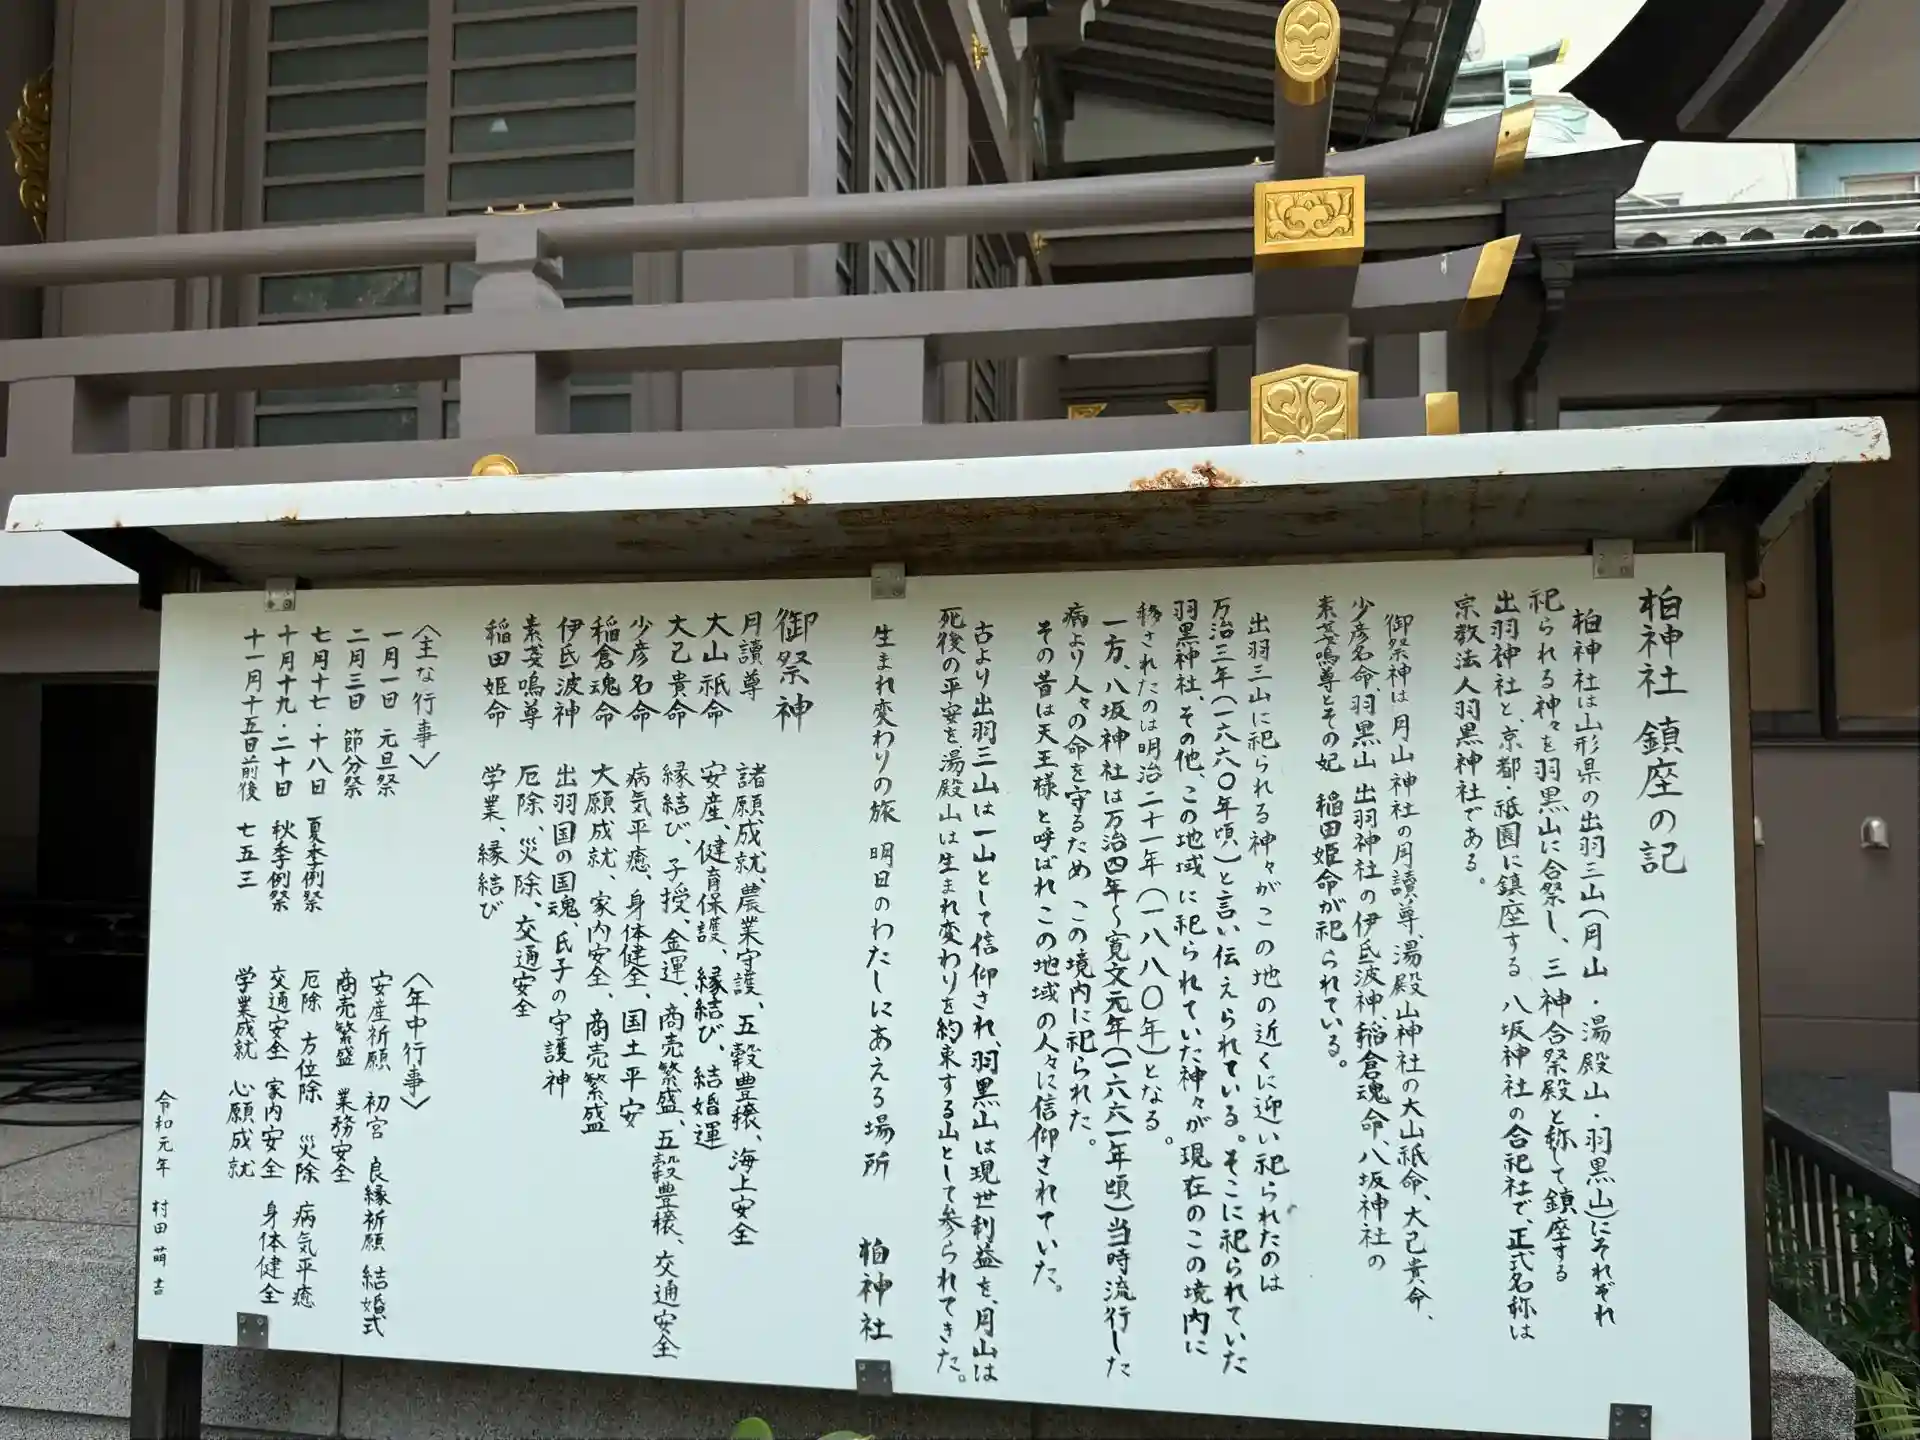 柏神社 鎮座の記
柏神社は山形県の出羽三山(月山・湯殿山・羽黒山)にそれぞれ
祀られる神々を羽黒山に合祭し、三神合祭殿と称して鎮座する
出羽神社と、京都・祗園に鎮座する 八坂神社の合祀社で、正式名称は
宗教法人羽黒神社である。
御祭神は月山神社の月讀尊、湯殿山神社の大山祇命、大己貴命、
少彦名命、羽黒山 出羽神社の伊氐波神、稲倉魂命、八坂神社の
素戔嗚尊とその妃 稲田姫命が祀られている。
出羽三山に祀られる神々がこの地の近くに迎い祀られたのは
万治三年(一六六〇年頃)と言い伝えられている。そこに祀られていた
羽黒神社、その他、この地域に祀られていた神々が現在のこの境内に
移されたのは明治二十一年(一八八〇年)となる。
一方、八坂神社は万治四年〜寛文元年(一六六一年頃)当時流行した
病より人々の命を守るため この境内に祀られた。
その昔は天王様と呼ばれこの地域の人々に信仰されていた。
古より出羽三山は一山として信仰され、羽黒山は現世利益を、月山は
死後の平安を湯殿山は生まれ変わりを約束する山として参られてきた。
生まれ変わりの旅 明日のわたしにあえる場所 柏神社
御祭神
月讀尊 諸願成就、農業守護、五穀豊穣、海上安全
大山祇命 安産、健育保護、縁結び、結婚運
大己貴命 縁結び、子授、金運、商売繁盛、五穀豊穣、交通安全
少彦名命 病気平癒、身体健全、国土平安
稲倉魂命 大願成就、家内安全、商売繁盛
伊氐波神 出羽国の国魂、氏子の守護神
素戔嗚尊 厄除、災除、交通安全
稲田姫命 学業、縁結び
〈主な行事〉
一月一日 元旦祭
二月三日 節分祭
七月十七・十八日 夏季例祭
十月十九・二十日 秋季例祭
十一月十五日前後 七五三
〈年中行事〉
安産祈願 初宮 良縁祈願 結婚式
商売繁盛 業務安全
厄除 方位除 災除 病気平癒
交通安全 家内安全 身体健全
学業成就 心願成就
令和元年 村田萌吉